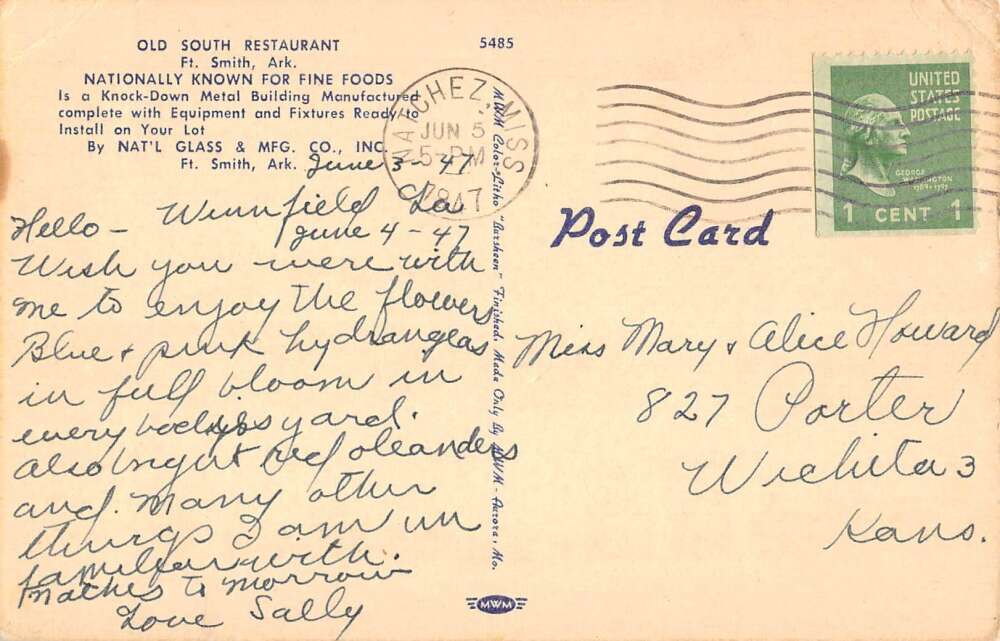 OLD SOUTH RESTAURANT
Ft. Smith, Ark.
NATIONALLY KNOWN FOR FINE FOODS
Is a Knock-Down Metal Building Manufactured
complete with Equipment and Fixtures Ready to
Install on Your Lot
By NAT'L GLASS & MFG. CO., INC.
Ft. Smith, Ark.
5485
NATCHEZ, MISS
JUN 5
5-PM
1947
UNITED
STATES
POSTAGE
GEORGE
WASHINGTON
1789-1797
1 CENT 1
Post Card
June 3-47
Winnfield La.
Hello - June 4-47
Wish you were with
me to enjoy the flowers
Blue & pink hydrangeas
in full bloom in
every bodys yard.
also bright red oleanders
and many other
things I am un
familiar with.
Natches to morrow
Love Sally
MWM Color-Litho "Larsheen" Finished, Made Only By MWM - Aurora, Mo.
Miss Mary & Alice Howard
827 Porter
Wichita 3
Kans.
MWM